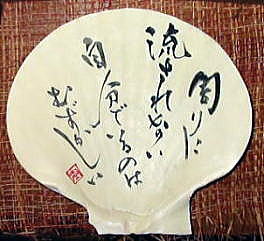 周りに
流されない
自分でいるのは
むずかしい